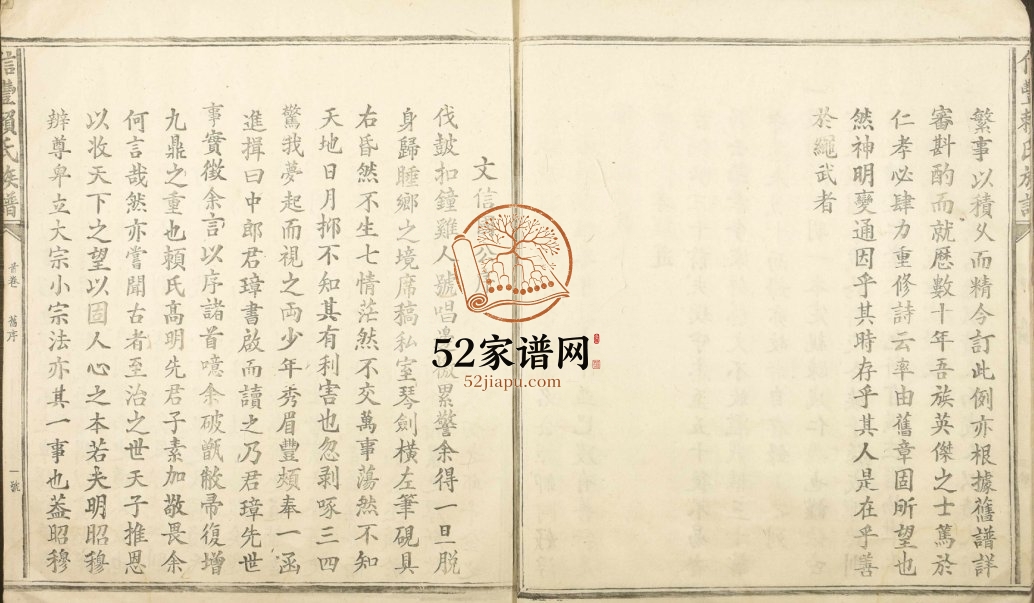 繁事以積久而精今訂此例亦根據舊譜詳
審斟酌而就歷數十年吾族英傑之士篤於
仁孝必肆力重修詩云率由舊章固所望也
然神明變通因乎其時存乎其人是在乎善
於繩武者
文信
伐鼓扣鐘雞人號唱 累警余得一旦脫
身歸睡鄉之境席稿私室琴劍橫左筆硯具
右昏然不生七情茫然不交萬事蕩然不知
天地日月抑不知其有利害也忽剥啄三四
驚我夢起而視之两少年秀眉豐頰奉一函
進揖曰中郎君璋書啟而讀之乃君璋先世
事實徵余言以序諸首噫余破甑敝帚復增
九鼎之重也賴氏高明先君子素加敬畏余
何言哉然亦嘗聞古者至治之世天子推恩
以收天下之望以固人心之本若夫明昭穆
辨尊卑立大宗小宗法亦其一事也葢昭穆
信豐賴氏族譜
首卷
舊序
一號
52家谱网
52jiapu.com